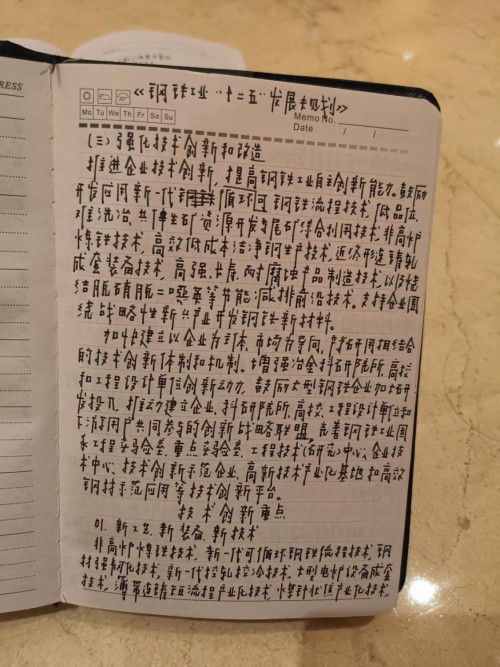 RESS
《钢铁工业“十二五”发展规划》
Mo Tu We Th Fr Sa Su
Memo No.
Date / /
(三)强化技术创新和改造
推进企业技术创新,提高钢铁工业自主创新能力。鼓励
开发应用新一代钢铁可循环钢铁流程技术,低品位、
难选冶、共伴生矿资源开发与尾矿综合利用技术,非高炉
炼铁技术,高效低成本洁净钢生产技术,近终形连铸轧
成套装备技术,高强、长寿、耐腐蚀产品制造技术,以及烧
结脱硝脱二噁英等节能减排前沿技术。支持企业围
绕战略性新兴产业开发钢铁新材料。
加快建立以企业为主体、市场为导向、产研用相结合
的技术创新体制和机制。增强冶金科研院所、高校
和工程设计单位创新动力,鼓励大型钢铁企业加大研
发投入,推动建立企业、科研院所、高校、工程设计单位和
下游用户共同参与的创新战略联盟,完善钢铁工业国
家工程实验室、重点实验室、工程技术(研究)中心、企业技
术中心、技术创新示范企业、高新技术产业化基地和高效
钢材示范应用等技术创新平台。
技术创新重点
01. 新工艺、新装备、新技术
非高炉炼铁技术,新一代可循环钢铁流程技术,钢
材强韧化技术,新一代控轧控冷技术,大型电炉设备成套
技术,薄带连铸短流程产业化技术,